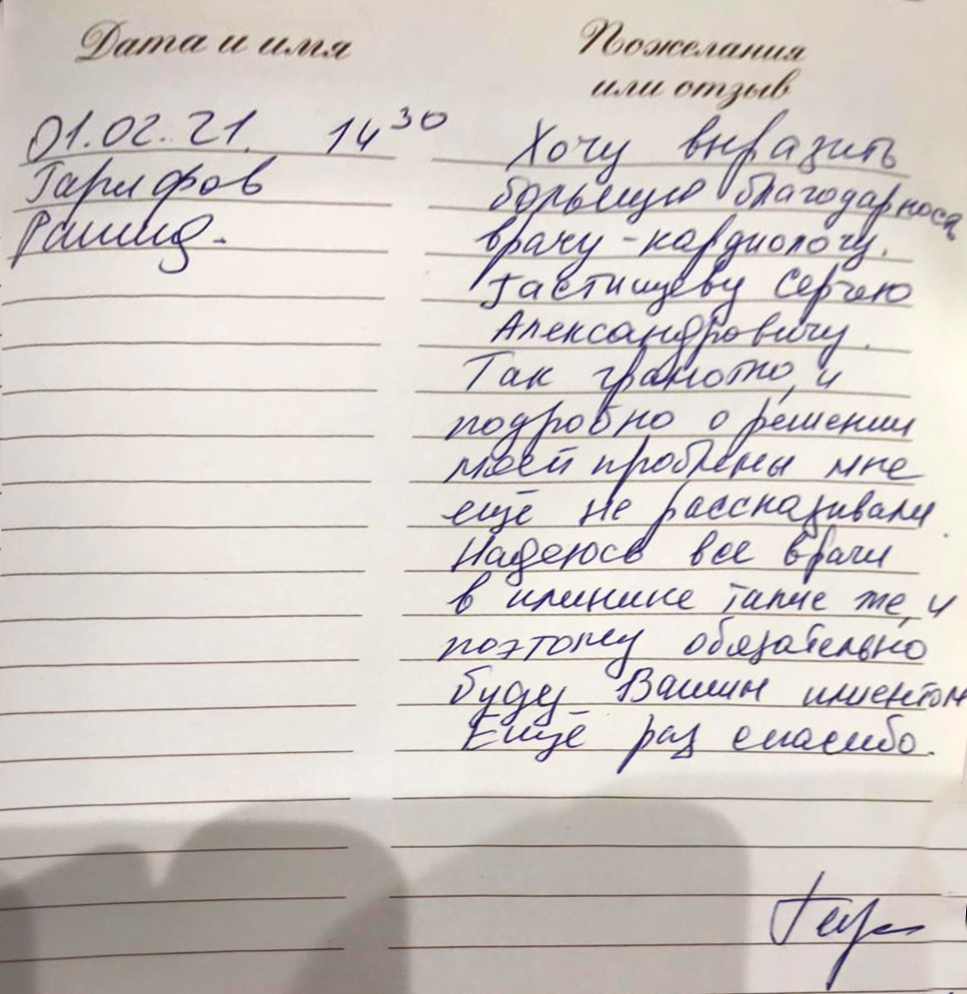 Дата и имя
01.02.21. 14 30
Гарифов
Рашид.
Пожелания
или отзыв
Хочу выразить
большую благодарность
врачу-кардиологу.
Гастищеву Сергею
Александровичу.
Так грамотно, и
подробно о решении
моей проблемы мне
ещё не рассказывали
Надеюсь все врачи
в клинике такие же, и
поэтому обязательно
буду Вашим клиентом
Ещё раз спасибо.